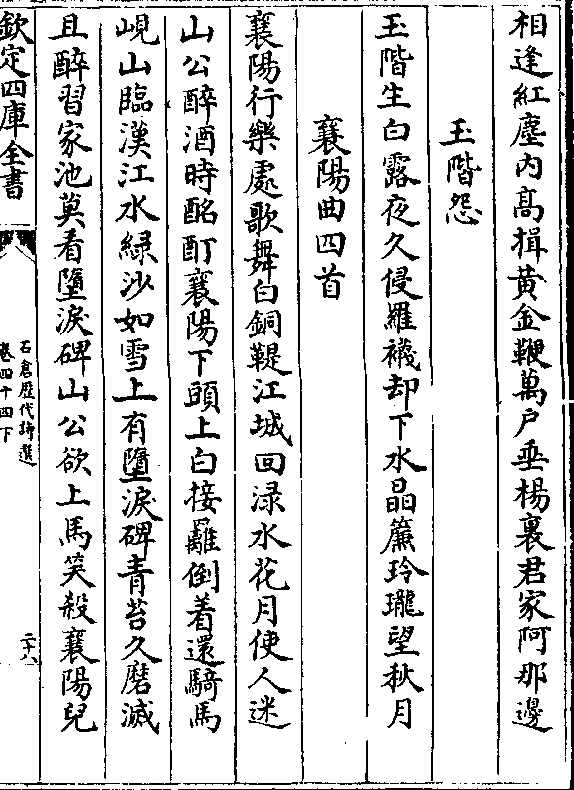 相逢紅塵内高揖黄金鞭萬户垂楊裏君家阿那邊
玉階怨
玉階生白露夜久侵羅襪却下水晶簾玲瓏望秋月
襄陽曲四首
襄陽行樂處歌舞白銅鞮江城回渌水花月使人迷
山公醉酒時酩酊襄陽下頭上白接䍦倒着還騎馬
峴山臨漢江水緑沙如雪上有墮淚碑青苔久磨滅
且醉習家池莫看墮淚碑山公欲上馬笑殺襄陽兒
欽定四庫全書
石倉歴代詩選
卷四十四下
二十八